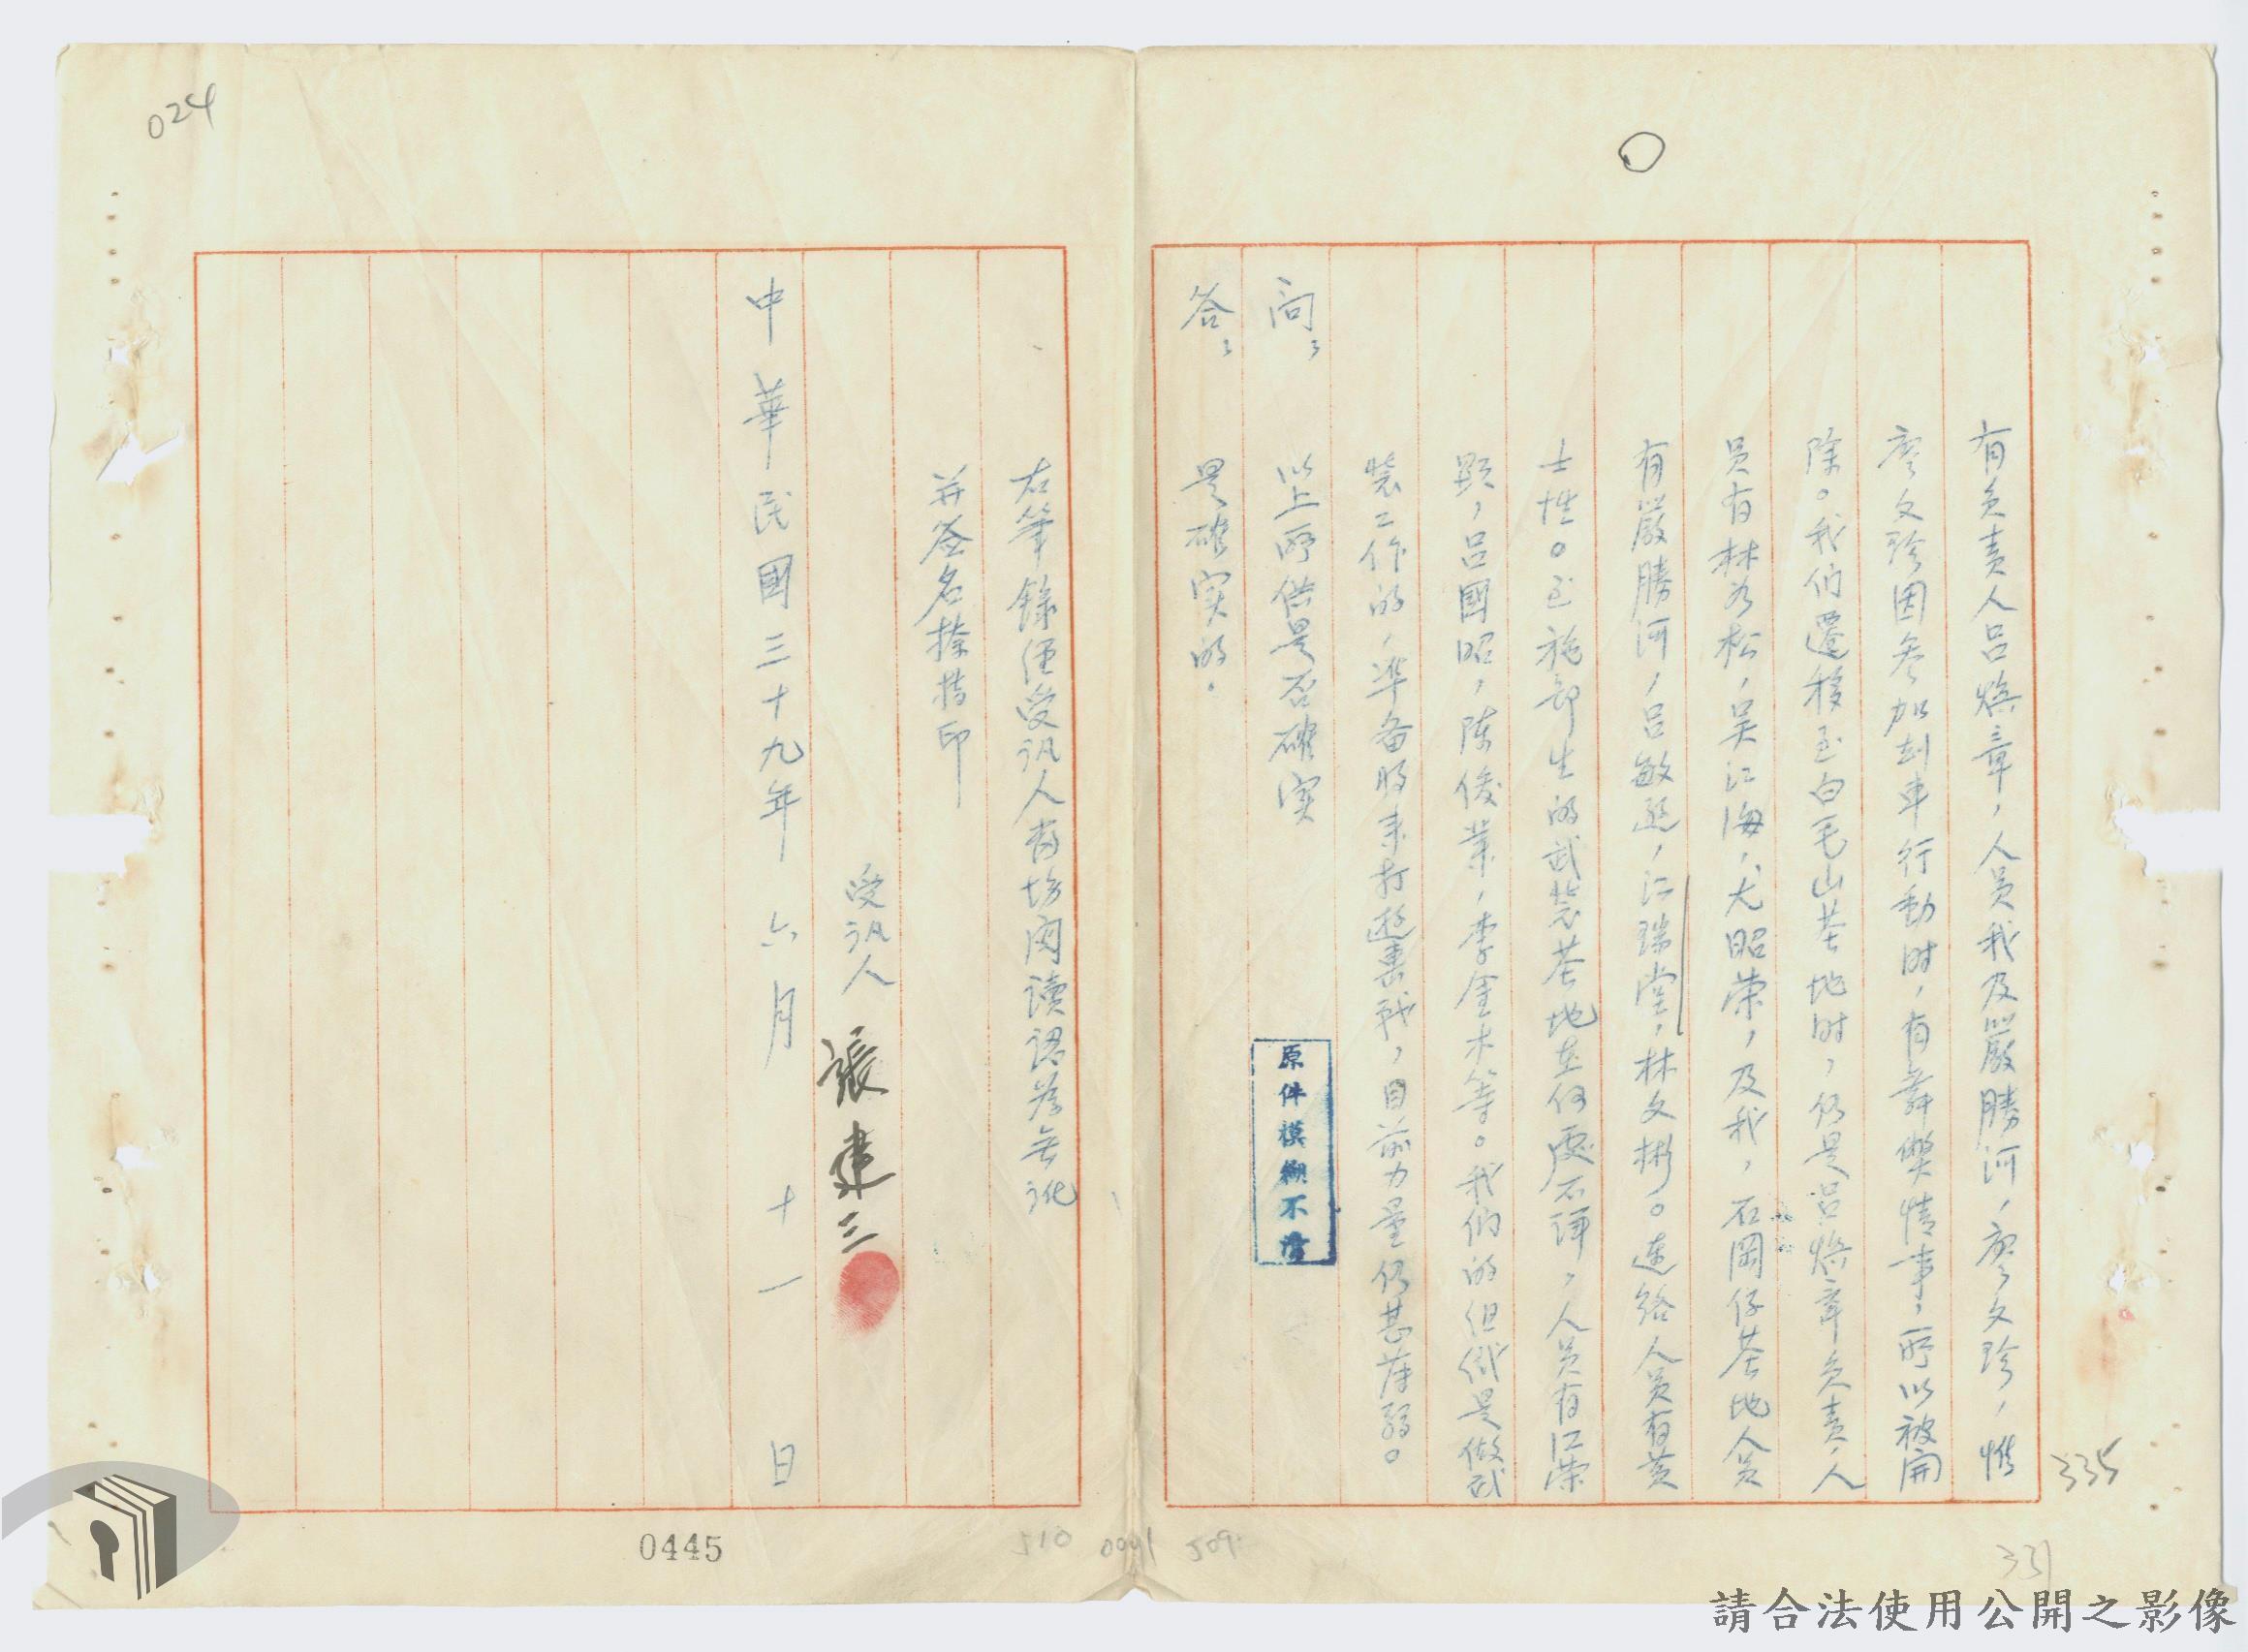 024
有負責人呂煥章，人員我及嚴勝河，廖文珍，惟
廖文珍因參加刦車行動时，有舞弊情事，所以被開
除。我们遷移至白毛山基地时，仍是呂煥章負責，人
員有林為松，吴江海，尤昭荣，及我，石岡仔基地人員
有嚴勝河，呂敏遜，江瑞堂，林文彬。連絡人員有黄
士性。至施部生的武裝基地在何處不詳，人員有江荣
顯，呂國昭，陳俊業，李金木等。我们的组織是做武
裝工作的，準备將来打遊擊战，目前力量仍甚薄弱。
问：以上所供是否確実
答：是確実的。
原件模糊不清
右筆錄經受訊人當場閱讀認為無訛
并簽名捺指印
受訊人 張建三
中華民國三十九年 六月 十一 日
335
331
0445
510 0001 509
請合法使用公開之影像